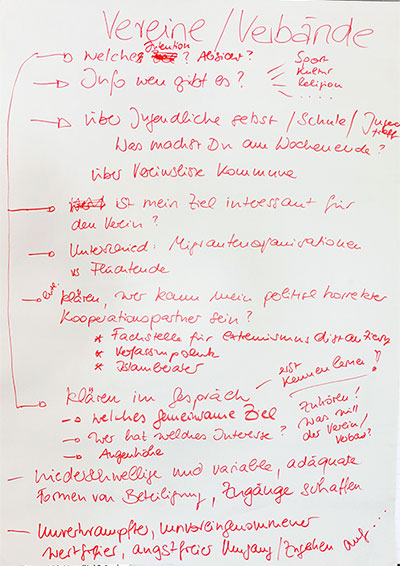 Vereine / Verbände
Intention
welches ? Absicht?
Sport
Kultur
Religion
.....
Info wen gibt es?
über Jugendliche selbst / Schule / Jugend
treff
Was machst Du am Wochenende?
über Vereinsliste Kommune
ist mein Ziel interessant für
den Verein?
Unterschied: Migrantenorganisationen
vs Flüchtende
klären, wer kann mein politisch korrekter
Kooperationspartner sein?
* Fachstelle für Extremismusdistanzierung
* Verfassungsschutz
* Islamberater
erst
kennenlernen!
klären im Gespräch
→ welches gemeinsame Ziel
→ Wer hat welches Interesse?
→ Augenhöhe
Zuhören!
was will
der Verein/
Verband?
- niederschwellige und variable, adäquate
Formen von Beteiligung, Zugänge schaffen
- Unverkrampfter, unvoreingenommener
wertfreier, angstfreier Umgang/Zugehen auf...